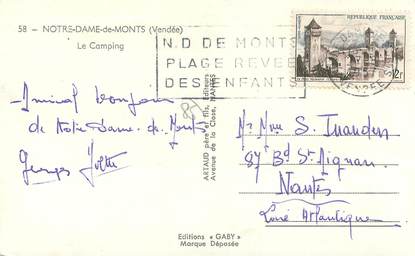 58 - NOTRE-DAME-de-MONTS (Vendée)
Le Camping
N.D DE MONTS
PLAGE REVEE
DES ENFANTS
REPUBLIQUE FRANÇAISE
12F
Amical bonjour
de Notre-Dame-de-Monts
Georges
85
ARTAUD père et fils, Editeurs
Avenue de la Close, NANTES
Mr Mme S.
87 Bd St Aignan
Nantes
Loire Atlantique
Editions « GABY »
Marque Déposée